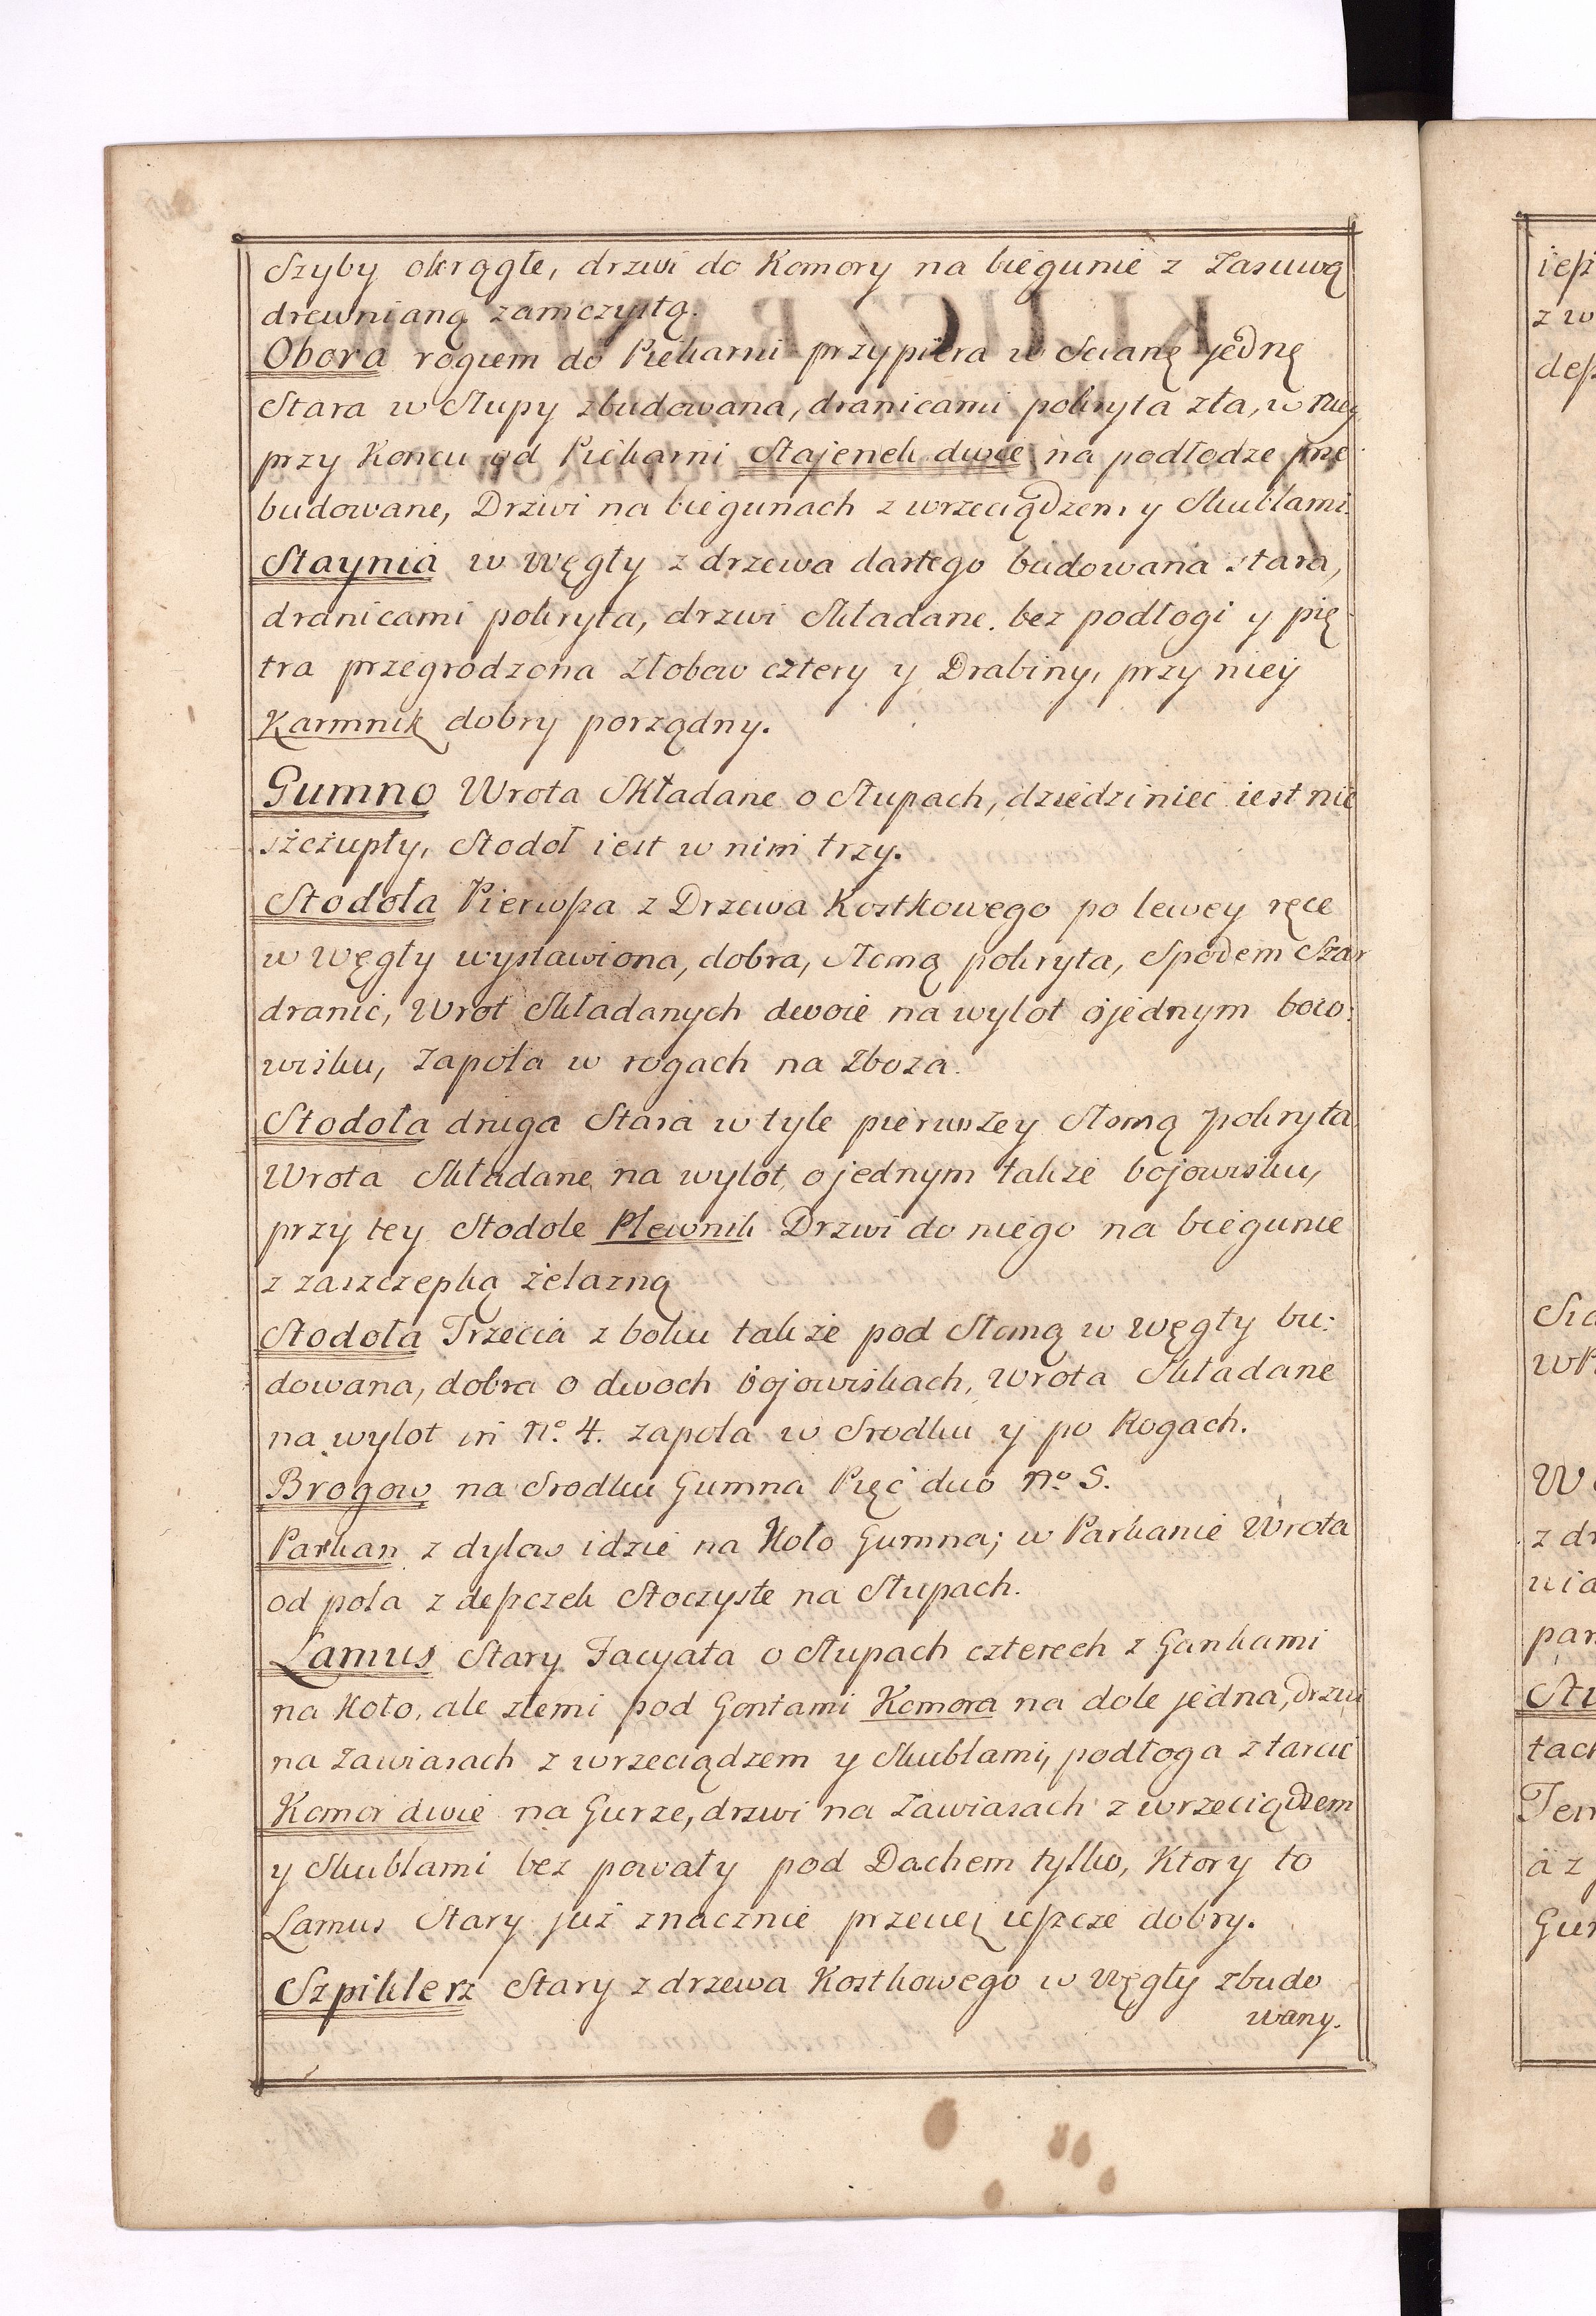 Szyby okrągłe, drzwi do Komory na biegunie z Zasuwą
drewnianą zamczystą.
Obora rogiem do Piekarni przypiera w Scianę jednę
Stara w Słupy zbudowana, dranicami pokryta zła, w Niey
przy Koncu od Piekarni Stajenek dwie na podłodze prze
budowane, Drzwi na biegunach z wrzeciądzem y Skublami.
Staynia w Węgły z drzewa dartego budowana stara,
dranicami pokryta, drzwi Składane. bez podłogi y pię
tra przegrodzona Złobow cztery y Drabiny, przy niey
Karmnik dobry porządny.
Gumno Wrota Składane o Słupach, dziedziniec iest nie
szczupły, Stodoł iest w nim trzy.
Stodoła Pierwsza z Drzewa Kostkowego po lewey ręce
w Węgły wystawiona, dobra, słomą pokryta, Spodem Szar
dranic, Wrot Składanych dwoie na wylot o jednym boio:
wisku, Zapola w rogach na Zboza.
Stodoła druga Stara w tyle pierwszey Słomą pokryta
Wrota Składane na wylot, o jednym także bojowisku,
przy tey Stodole Plewnik Drzwi do niego na biegunie
z zaszczepką żelazną
Stodoła Trzecia z boku także pod Słomą w Węgły bu:
dowana, dobra o dwoch bojowiskach, Wrota Składane
na wylot in No. 4. zapola w Srodku y po Rogach.
Brogow na Srodku Gumna Pięć duo No. 5.
Parkan z dylow idzie na Koło Gumna; w Parkanie Wrota
od pola z deszczek Stoczyste na Słupach.
Lamus Stary Facyata o Słupach czterech z Gankami
na Koło, ale złemi pod Gontami Komora na dole jedna, drzwi
na Zawiasach z wrzeciądzem y Skublami, podłoga z tarcic
Komor dwie na Gurze, drzwi na Zawiasach z wrzeciądzem
y Skublami bez powały pod Dachem tylko, Ktory to
Lamus Stary już znacznie przeuey ieszcze dobry.
Szpiklerz Stary z drzewa Kostkowego w Węgły zbudo
wany.